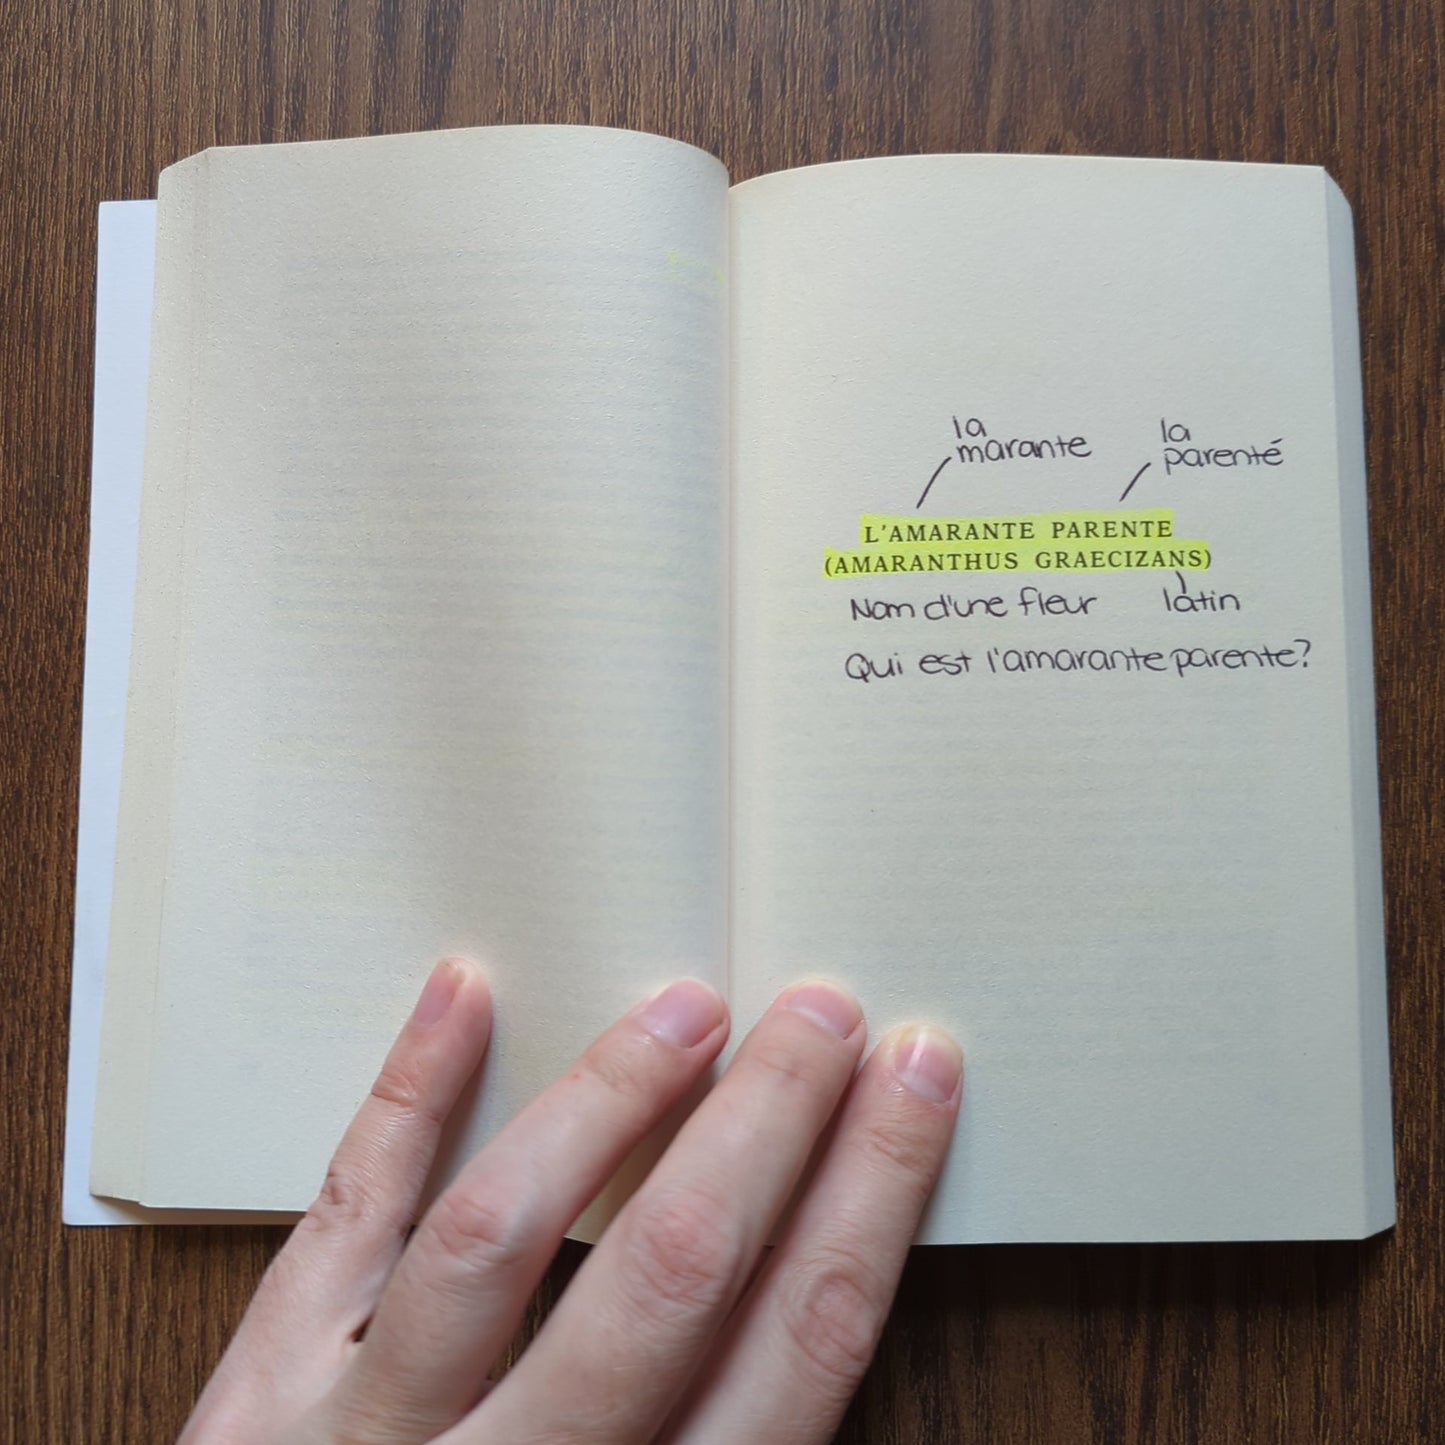 la
marante
la
parenté
L'AMARANTE PARENTE
(AMARANTHUS GRAECIZANS)
Nom d'une fleur
latin
Qui est l'amarante parente?